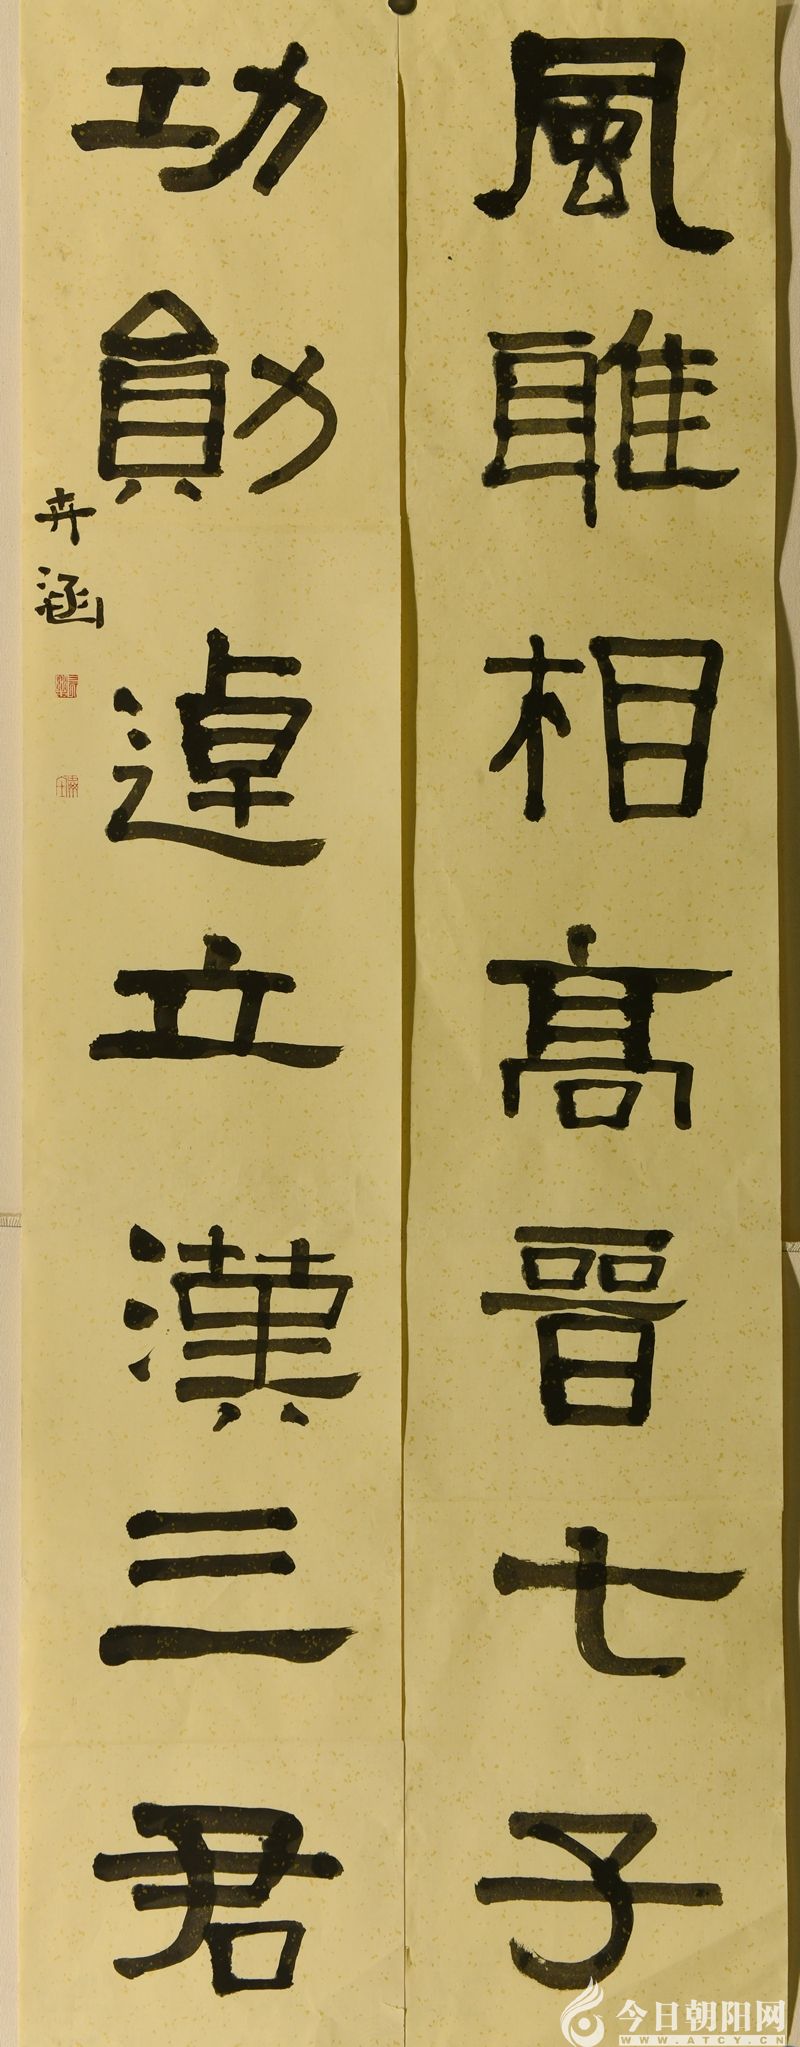 風雅相高晉七子
功勛逴立漢三君
卉涵
今日朝阳网
WWW.ATCY.CN